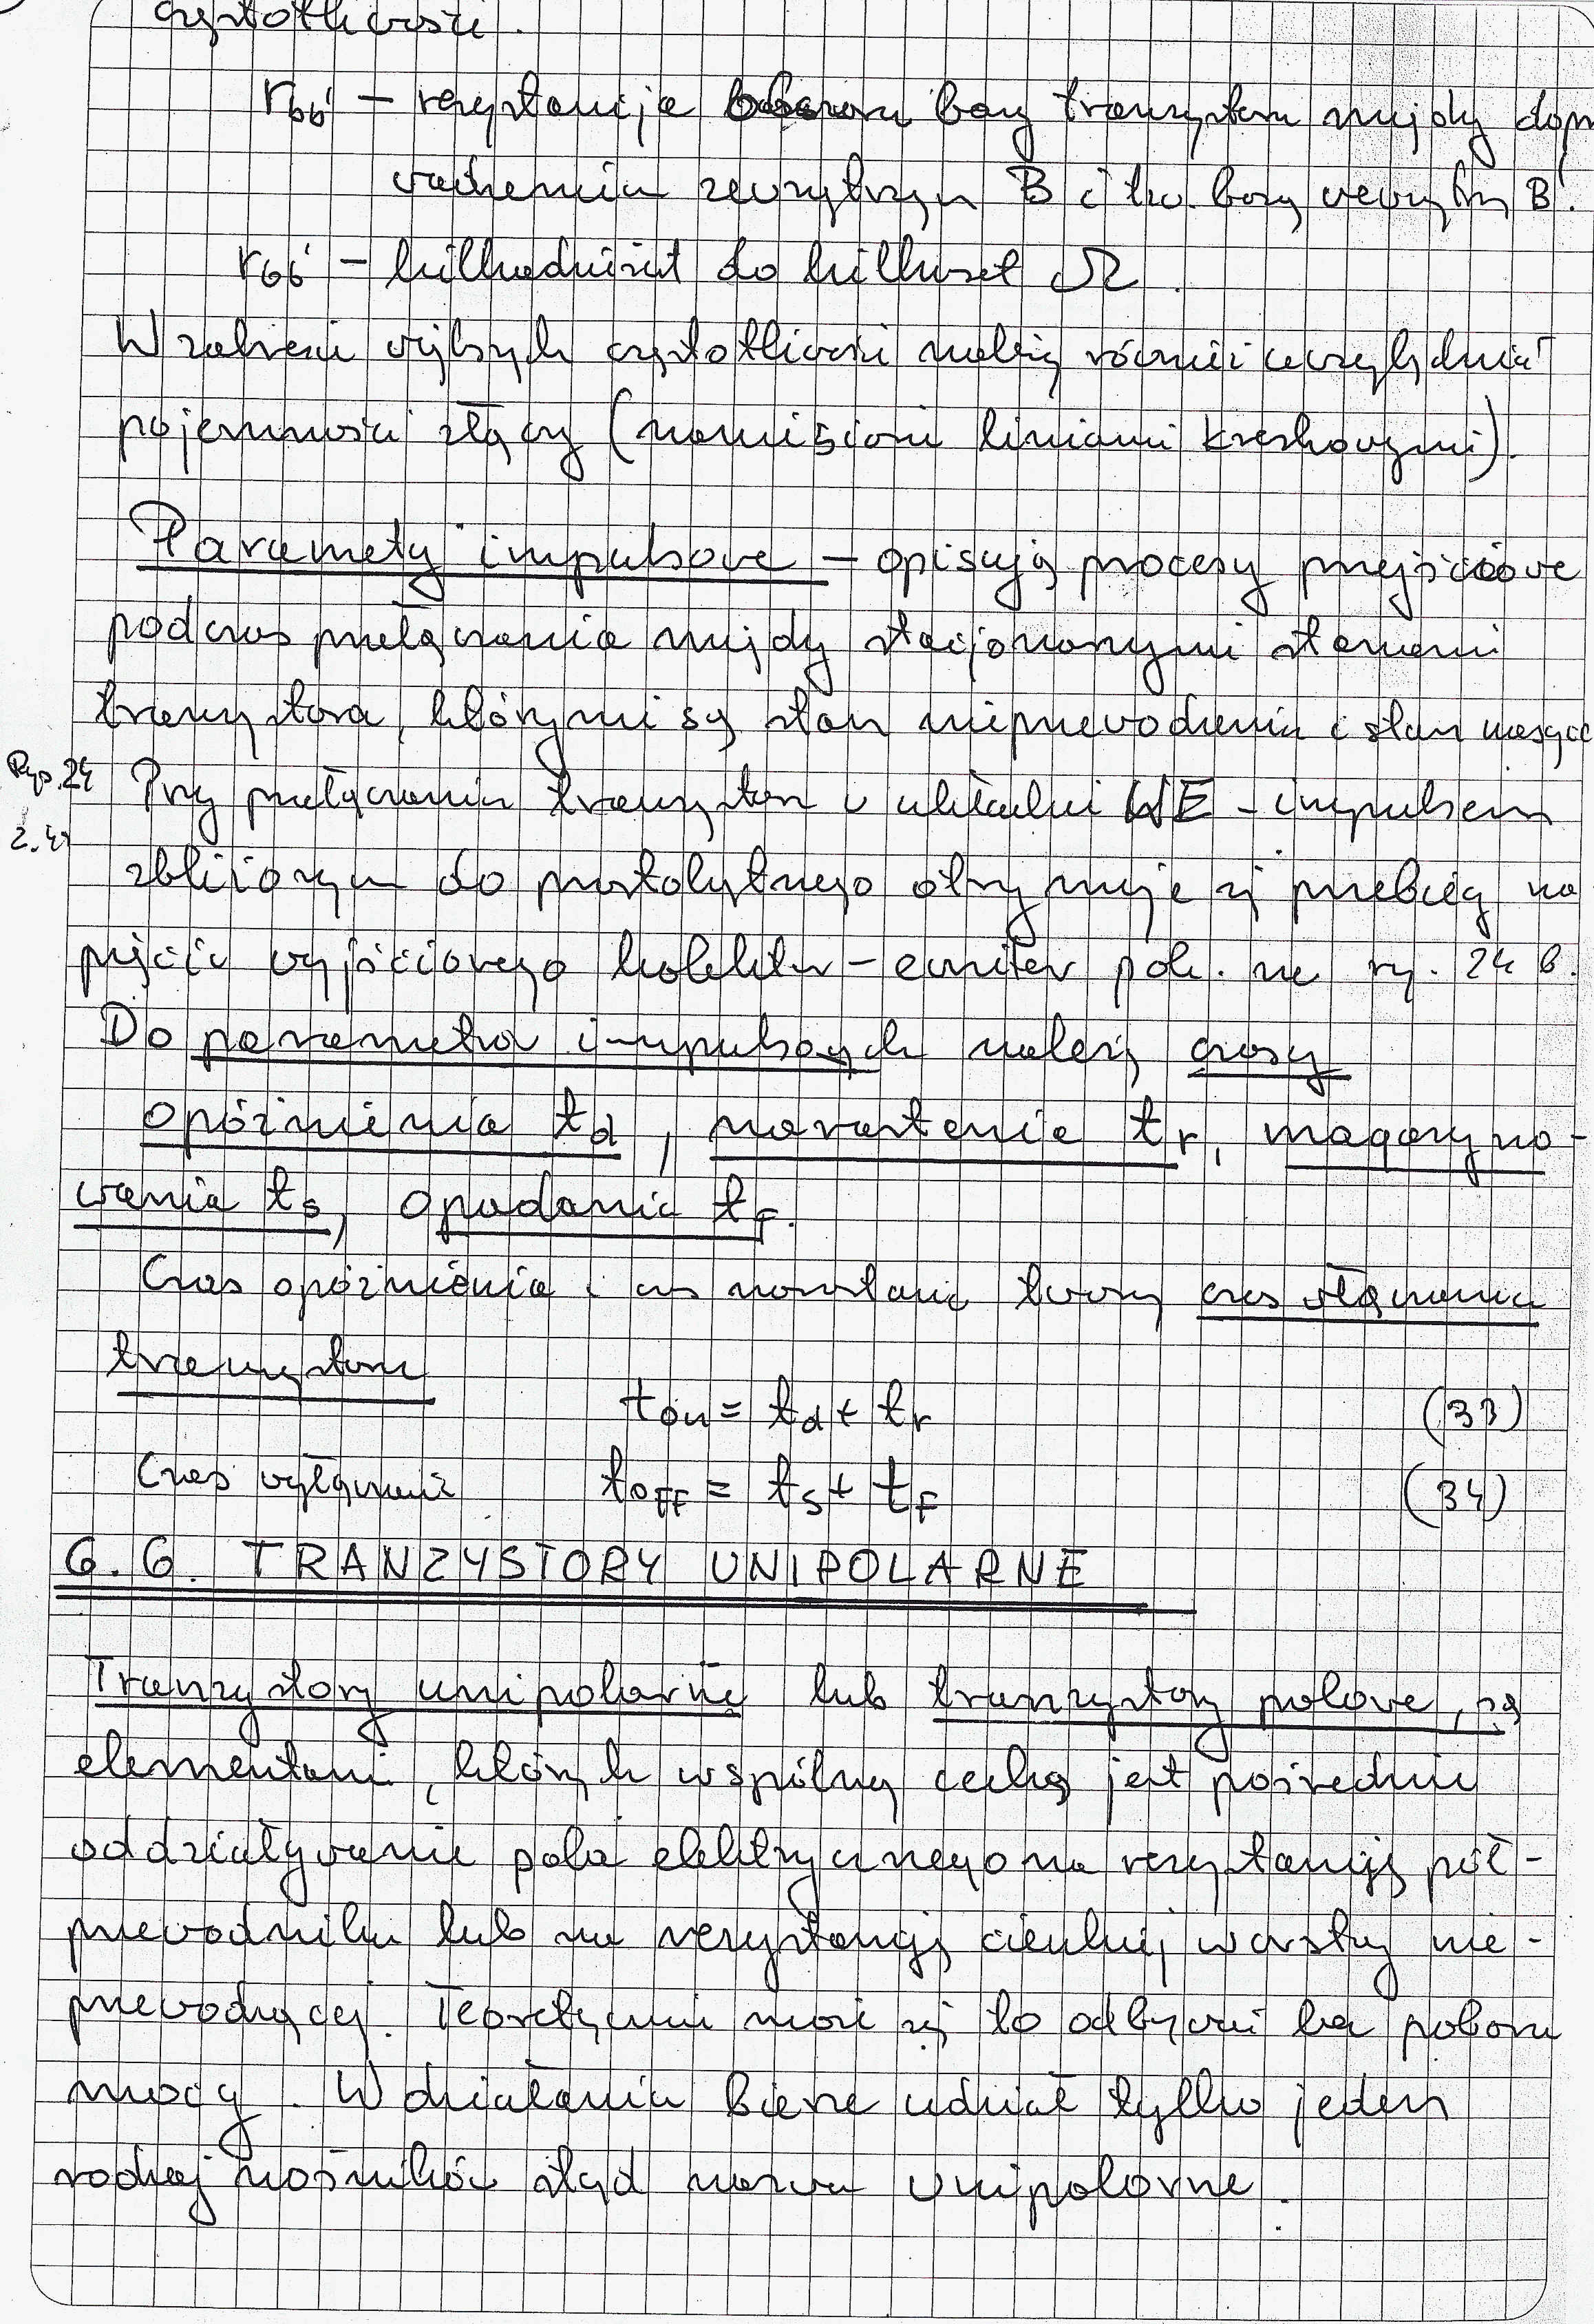 częstotliwości.
rbb' – rezystancja obszaru bazy tranzystora między dopro
wadzeniem zewnętrznym B i tzw. bazą wewnętrzną B'.
rbb' – kilkadziesiąt do kilkuset Ω.
W zakresie wyższych częstotliwości należy również uwzględniać
pojemności złączy (naniesione liniami kreskowymi).
Parametry impulsowe – opisują procesy przejściowe
podczas przełączania między stacjonarnymi stanami
tranzystora, którymi są stan nieprzewodzenia i stan nasyce
Rys. 24
Przy przełączaniu tranzystora w układzie WE – impulsem
zbliżonym do prostokątnego otrzymuje się przebieg na
pięcia wyjściowego kolektor – emiter pok. na rys. 24 b.
Do parametrów impulsowych należą czasy
opóźnienia td, narastania tr, magazyno-
wania ts, opadania tF.
Czas opóźnienia i czas narastania tworzą czas włączania
tranzystora
tON = td + tr (33)
Czas wyłączania tOFF = ts + tF (34)
6.6. TRANZYSTORY UNIPOLARNE
Tranzystory unipolarne lub tranzystory polowe, są
elementami, których wspólną cechą jest pośrednie
oddziaływanie pola elektrycznego na rezystancję pół-
przewodnika lub na rezystancję cienkiej warstwy nie-
przewodzącej. Teoretycznie może się to odbywać bez poboru
mocy. W działaniu bierze udział tylko jeden
rodzaj nośników stąd nazwa unipolarne.